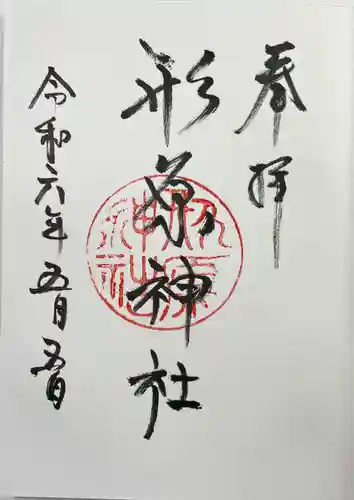 奉拝
形原神社
令和六年五月五日
形原神社